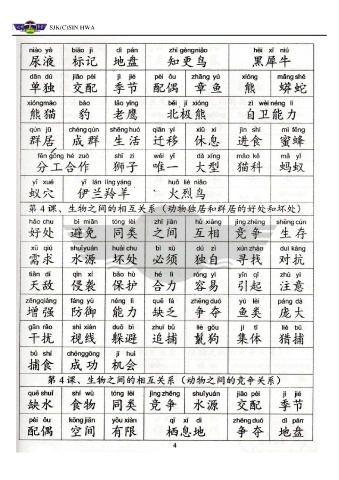 SJK(C)SIN HWA
niào yè biāo jì dì pán zhī gèngniǎo hēi xī niú
尿液 标记 地盘 知更鸟 黑犀牛
dān dú jiāo pèi jì jié pèi ǒu zhāng yú xióng mǎng shé
单独 交配 季节 配偶 章鱼 熊 蟒蛇
xióngmāo bào lǎo yīng běi jí xióng zì wèi néng lì
熊猫 豹 老鹰 北极熊 自卫能力
qún jū chéng qún shēng huó qiān yí xiū xi jìn shí mì fēng
群居 成群 生活 迁移 休息 进食 蜜蜂
fēn gōng hé zuò shī zi wéi yī dà xíng māo kē mǎ yǐ
分工合作 狮子 唯一 大型 猫科 蚂蚁
yǐ xué yī lán líng yáng huǒ liè niǎo
蚁穴 伊兰羚羊 火烈鸟
第 4 课、生物之间的相互关系（动物独居和群居的好处和坏处）
hǎo chu bì miǎn tóng lèi zhī jiān hù xiāng jìng zhēng shēng cún
好处 避免 同类 之间 互相 竞争 生存
xū qiú shuǐyuán huài chu bì xū dú zì xún zhǎo duì kàng
需求 水源 坏处 必须 独自 寻找 对抗
tiān dí qīn xí bǎo hù hé lì róng yì yǐn qǐ zhù yì
天敌 侵袭 保护 合力 容易 引起 注意
zēngqiáng fáng yù néng lì quē fá zhēng duó yú lèi páng dà
增强 防御 能力 缺乏 争夺 鱼类 庞大
gān rǎo shì xiàn duǒ bì zhuī bǔ liè gǒu jí tǐ liè bǔ
干扰 视线 躲避 追捕 鬣狗 集体 猎捕
bǔ shí chénggōng jī huì
捕食 成功 机会
第 4 课、生物之间的相互关系（动物之间的竞争关系）
quē shuǐ shí wù tóng lèi jìng zhēng shuǐyuán jiāo pèi jì jié
缺水 食物 同类 竞争 水源 交配 季节
pèi ǒu kōng jiān yǒu xiàn qī xī dì zhēng duó dì pán
配偶 空间 有限 栖息地 争夺 地盘
4